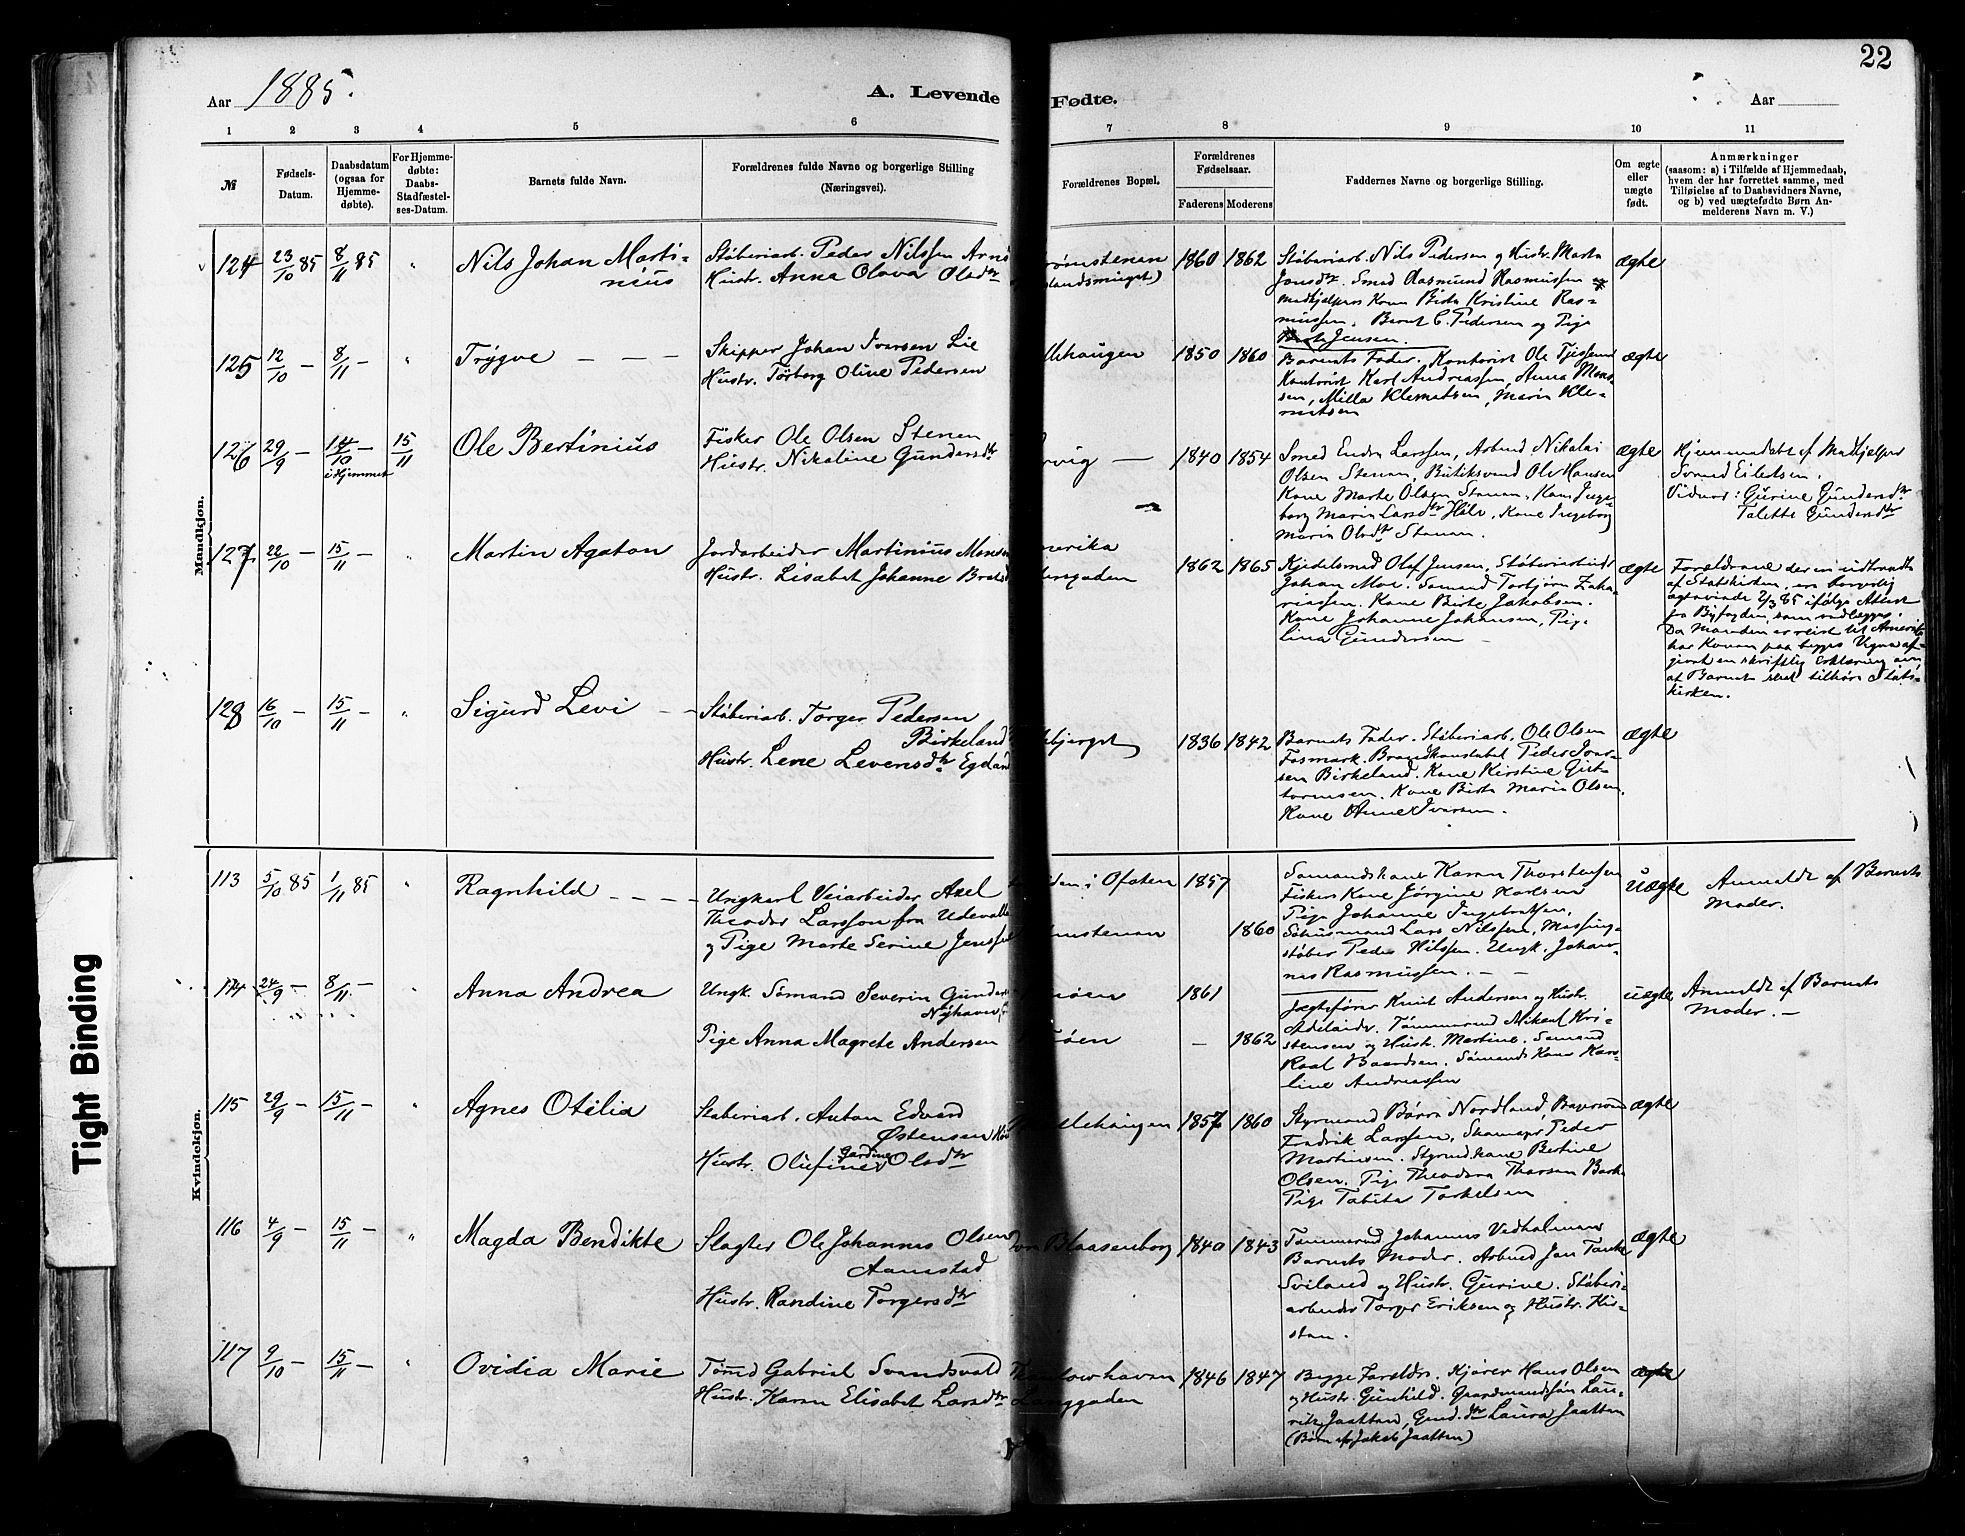 22
Aar 1885. A. Levende Fødte. Aar
1 2 3 4 5 6 7 8 9 10 11
№ Fødsels-Datum. Daabsdatum (ogsaa for Hjemme-døbte). For Hjemme-døbte: Daabs-Stadfæstel-ses-Datum. Barnets fulde Navn. Forældrenes fulde Navne og borgerlige Stilling (Næringsvei). Forældrenes Bopæl. Forældrenes Fødselsaar. Faderens Moderens Faddernes Navne og borgerlige Stilling. Om ægte eller uægte født. Anmærkninger (saasom: a) i Tilfælde af Hjemmedaab, hvem der har forrettet samme, med Tilføielse af to Daabsvidners Navne, og b) ved uægtefødte Børn An-melderens Navn m. V.)
Mandkjøn.
124 23/10 85 8/11 85 " Nils Johan Marti-
nius
Støberiarb. Peder Nilssen
Hustr. Anna Olava Olsdtr
1860 1862
Støberiarb. Nils Pedersen og Hustr. Marta
Jonsdtr. Smed Rasmund Rasmussen og
Medhjelpers Kone Birta Kristine Ras-
mussen. Bernt C. Pedersen og Pige
Jensen.
ægte
125 12/10 – 8/11 – " Trygve – – –
Skipper Johan Iversen Lie
Hustr. Torborg Oline Pedersen
llehaugen 1850 1860
Barnets Fader. Kontorist Ole
Kontorist Karl Andreassen, Anna Mons-
sen, Milla Klemetsen, Maria Kle-
metsen
ægte
126 29/9 – 14/10 – i Hjemmet 15/11 Ole Bertinius
Fisker Ole Olsen Stenen
Hustr. Nikoline Gundersdtr
vig – 1840 1854
Smed Endre Larssen, Arbmd Nikolai
Olsen Stenen, Butiksvend Olv Hansen
Kone Marte Olsen Stenen, Kone Inge-
borg Maria Larsdtr , Kone Ingeborg
Maria Olsdtr Stenen.
ægte
Hjemmedøbt af Medhjelper
Svend Eiletsen.
Vidner: Gurine Gundersdtr
Talette Gundersdtr
127 22/10 – 15/11 – " Martin Agaton
Jordarbeider Martinius Monsen
Hustr. Lisabet Johanne
merika
gaden 1862 1865
Kjedelsmed Olaf Jensen, Støberiarbeider
Johan Moe. Sømand Torbjørn Zaka-
riassen. Kone Birte Jakobsen.
Kone Johanne Johansen, Pige
Lina Gundersen –
ægte
Forældrene der er udtraadte
af Statskirken, ere borgerlig
ægteviede 2/3 85 ifølge Attest
fra Byfogden, som vedlægges.
Da Manden er reist til Amerika
har Konen paa begges Vegne af-
givet en skriftlig Erklæring om,
at Barnet skal tilhøre Stats-
kirken.
128 16/10 – 15/11 – " Sigurd Levi – –
Støberiarb. Torger Pedersen
Birkeland
Hustr. Lene Levensdtr
bjerget 1836 1842
Barnets Fader. Støberiarb. Ole Olsen
Fosmark. Brandkonstabel Peder Iver-
sen Birkeland. Kone Kirstine Gut-
tormsen. Kone Birta Maria Olsen,
Kone Anne Iversen.
ægte
Kvindekjøn.
113 5/10 85 1/11 85 " Ragnhild – – – –
Ungkarl Veiarbeider Axel
Theodor Larsson fra Udevalla
og Pige Marte Serine
i Ofoten 1857
stenen 1860
Sømandskone Karen Thorstensen
Fiskers Kone Jørgine Karlsen
Pige Johanne Ingebretsen,
Skusmand Lars Nilssen, Messing-
støber Peder Nilssen. Ungk. Johan-
nes Rasmussen. – –
uægte
Anmeldt af Barnets
Moder.
114 24/9 – 8/11 – " Anna Andrea
Ungk. Sømand Severin
Nyhavn
Pige Anna Magrete Andersen
øen 1861
øen – 1862
Jægtefører Knut Andersen og Hustr.
Adelaide. Tømmermd Mikael Kri-
stensen og Hustr. Martine. Sømand
Roal Baardsen. Sømands Kone Karo-
line Andreassen
uægte
Anmeldt af Barnets
Moder. –
115 29/9 – 15/11 – " Agnes Otilia
Støberiarb. Anton Edvard
Østensen
Hustr. Olufine Gardine Olsdtr
llehaugen 1857 1860
Styrmand Børre Nordland,
Fredrik Larssen, Skomager Peder
Martinsen. Styrmdskone Bertine
Olsen. Pige Theodora Thorsen
Pige Tabita Torkelsen
ægte
116 4/9 – 15/11 – " Magda Bendikte
Slagter Ole Johannes Olsen
Aamstad
Hustr. Randine Torgersdtr
Blaasenborg 1840 1843
Tømmermd Johannes Vedholmen
Barnets Moder. Arbmd Jon
Sviland og Hustr. Gurine. Støberi-
arbeider Torger Eriksen og Hustr. Kir-
sten.
ægte
117 9/10 – 15/11 – " Ovidia Marie
Tømd Gabriel Svendsvold
Hustr. Karen Elisabet Larsdtr
havn
Langgaden 1846 1847
Begge Forældre. Kjører Hans Olsen
og Hustr. Gunhild. Gaardmandssøn Lau-
ritz Jaatten, Gmd. dtr Laura Jaatten
(Børn af Jakob Jaatten)
ægte
Tight Binding